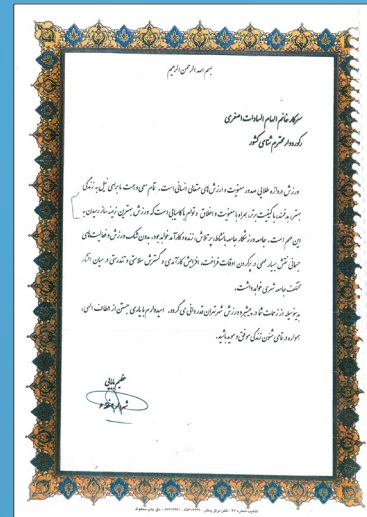 بسم الله الرحمن الرحیم
سرکار خانم الهام السادات اصغری
رکورددار محترم شنای کشور
ورزش دروازه طلایی صدور معنویت و ارزش‌های متعالی انسانی است. تمام سعی و همت ما برای نیل به زندگی
بهتر، هدفمند، با کیفیت برتر، همراه با معنویت و اخلاق و توام با کامیابی است که ورزش بهترین زمینه ساز رسیدن به
این مهم است. جامعه ورزشکار جامعه با نشاط، پرتلاش، زنده و کارآمد خواهد بود. بدون شک ورزش و فعالیت‌های
جسمانی نقش بسیار مهمی در پرکردن اوقات فراغت، افزایش کارآمدی و گسترش سلامتی و تندرستی در میان اقشار
مختلف جامعه شهری خواهد داشت.
بدینوسیله از زحمات شما در پیشبرد ورزش شهر تهران قدردانی می گردد. امیدوارم با یاری جستن از الطاف الهی،
همواره در تمامی شئون زندگی موفق و موید باشید.
عظیم بابایی
شهردار منطقه